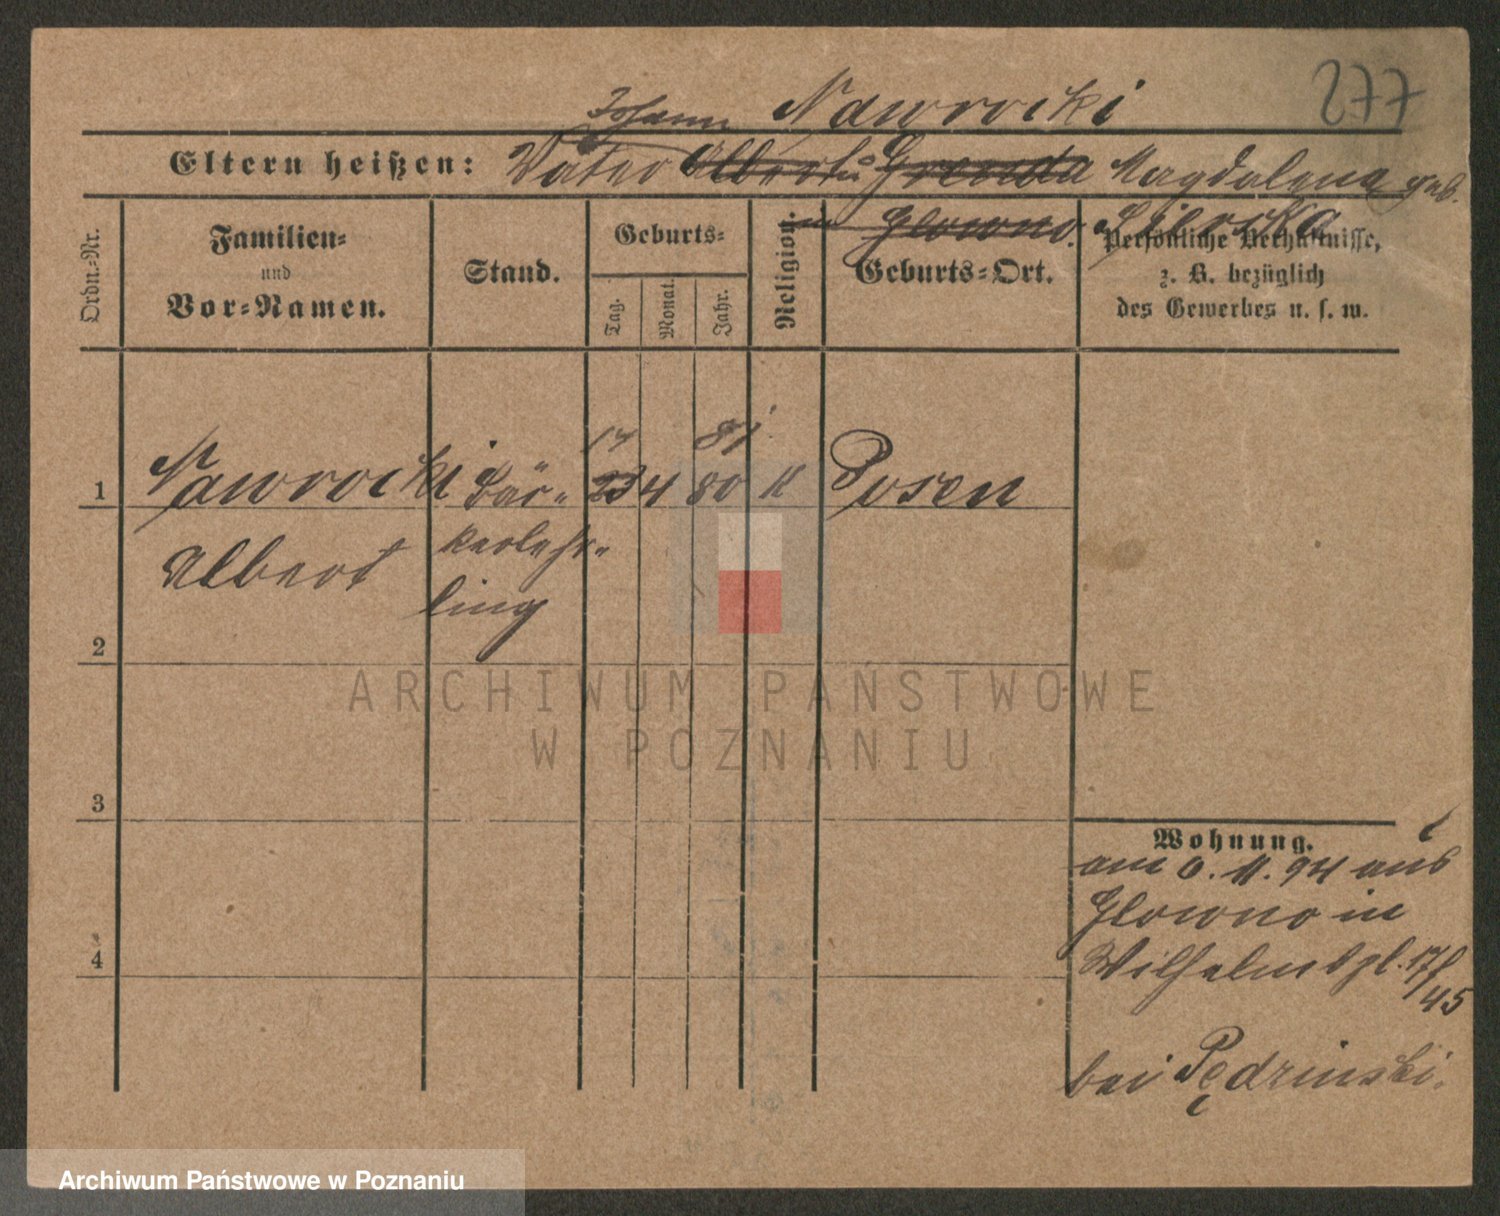 277
Johann Nawrocki
Eltern heißen: Vater Albert u Grenda Magdalena geb.
in Glowno.
Ordn.-Nr.
Familien-
und
Vor-Namen.
Stand.
Geburts-
Tag.
Monat.
Jahr.
Religion.
Geburts-Ort.
Persönliche Verhältnisse,
z. B. bezüglich
des Gewerbes u. s. w.
17 81
1 Nawrocki Bäc- 23 4 80 K Posen
Albert kerlehr-
ling
2
3
4
Wohnung.
am 6. 11. 94 aus
Glowno in
Wilhelmspl. 17/
45
bei Pędzinski.
ARCHIWUM PAŃSTWOWE
W POZNANIU
Archiwum Państwowe w Poznaniu